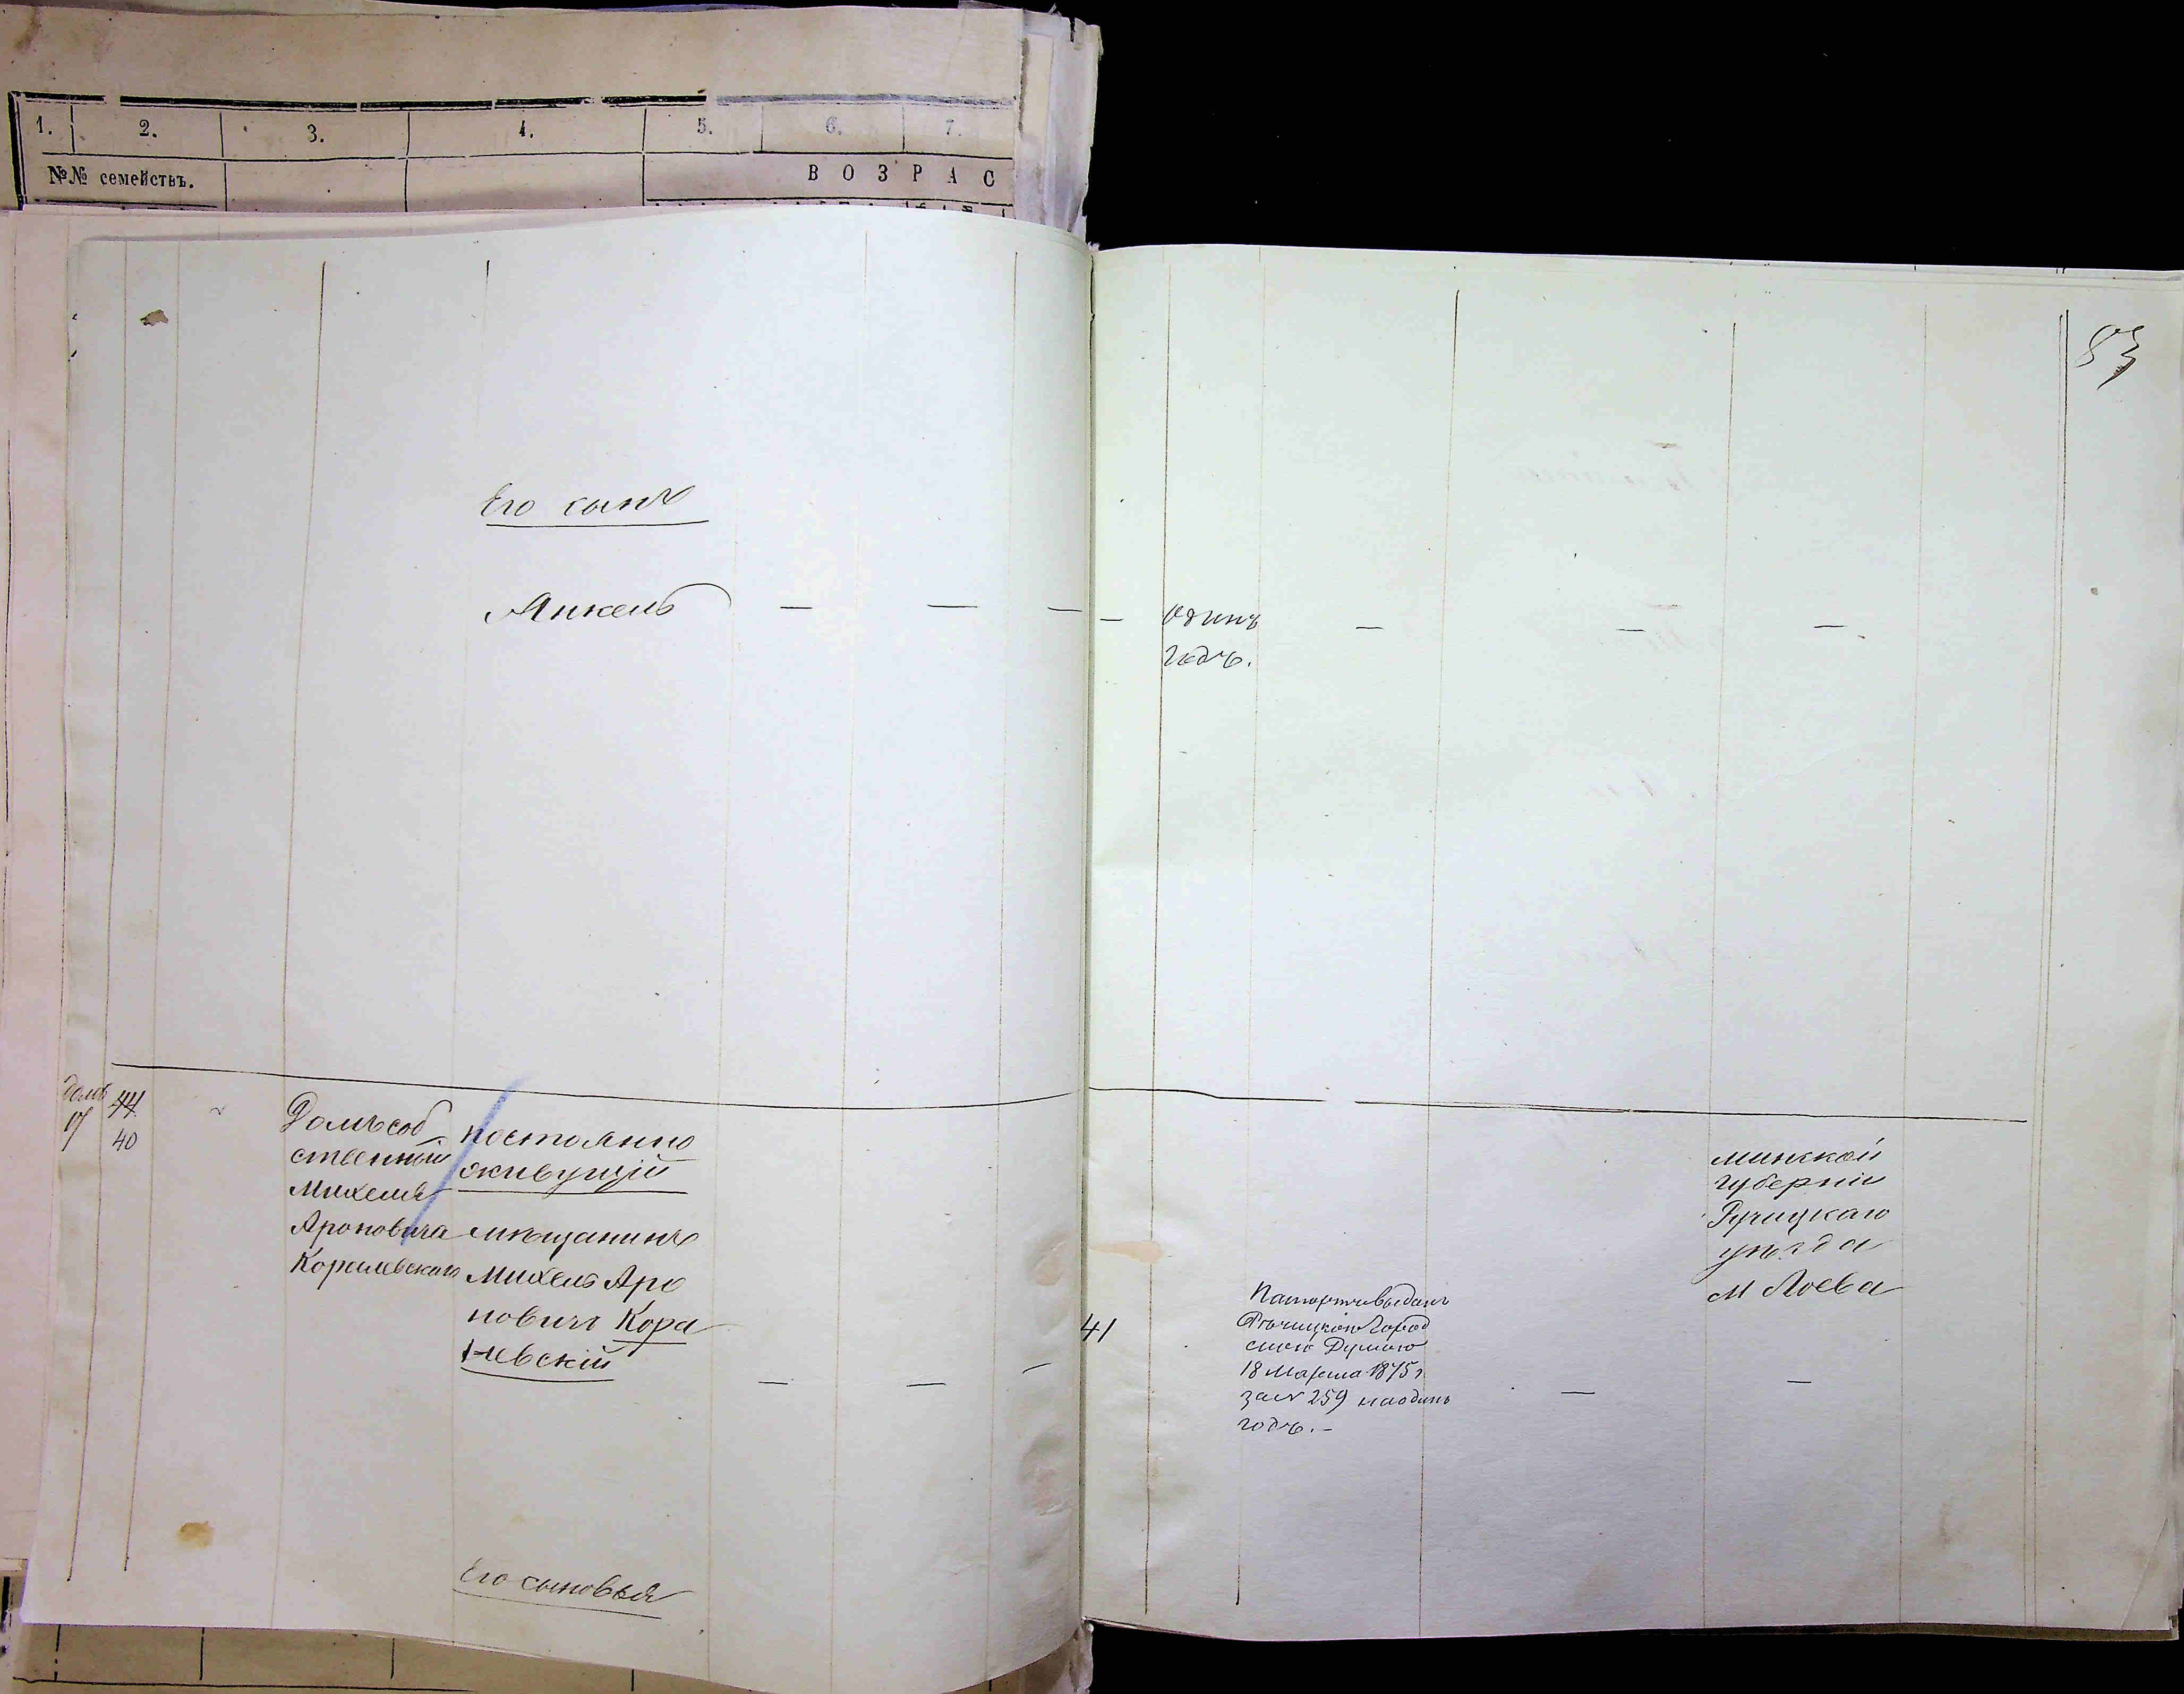 1. 2. 3. 4. 5. 6. 7.
№№ семействъ.
ВОЗРАС
83
Его сынъ
Янкель — — — — одинъ — — —
годъ.
домъ
17
44
40
Домъ соб
ственный
Михеля
Ароновича
Коралевскаго
постоянно
живущій
мѣщанинъ
Михель Аро
новичъ Кора
левскій — — —
41
Паспортъ выданъ
Рѣчицкою Город
скою Думою
18 Марта 1875 г
за № 259 на одинъ
годъ. —
— —
минской
губерніи
Рѣчицкаго
уѣзда
м Лоева
Его сыновья